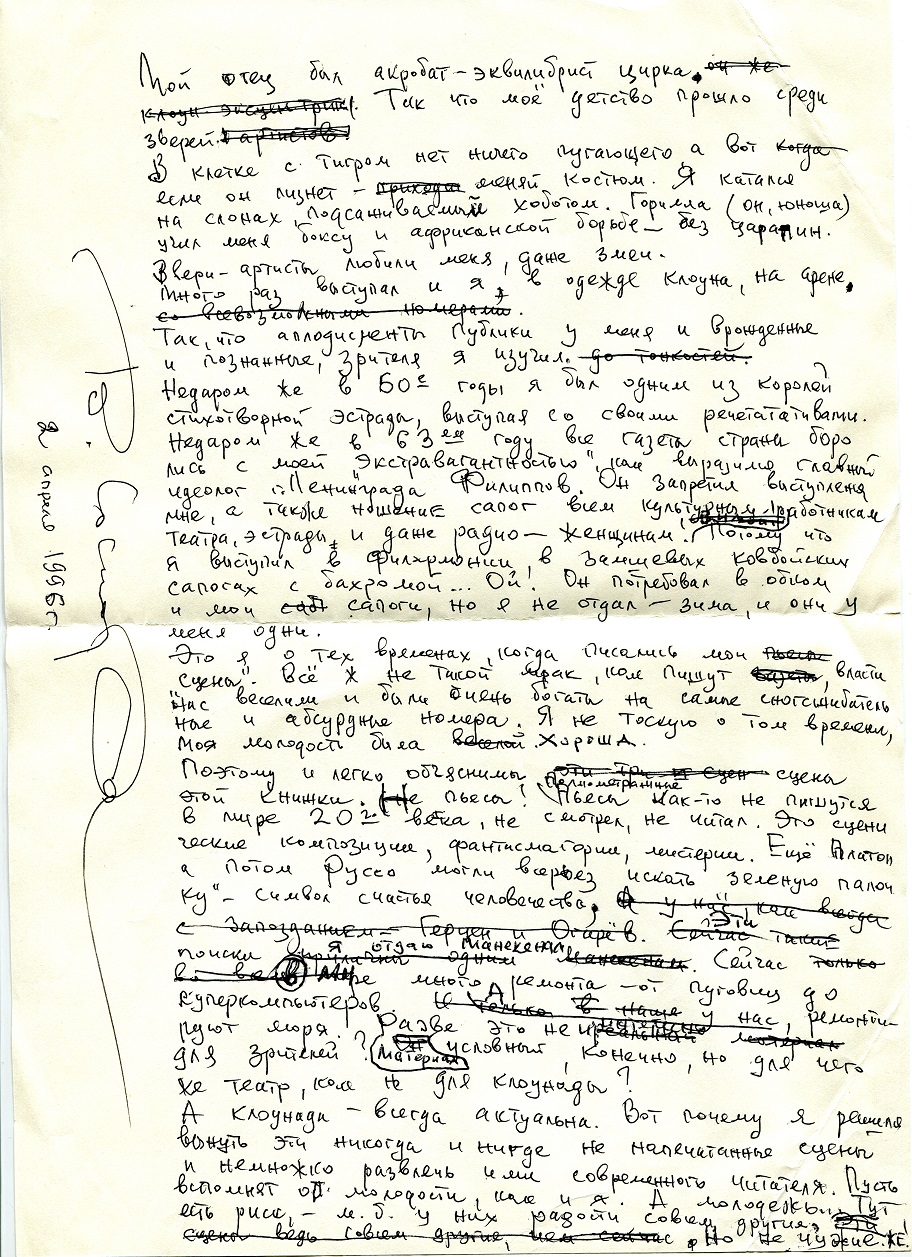 Мой отец был акробат-эквилибрист цирка. он же
клоун-эксцентрик. Так что моё детство прошло среди
зверей. и артистов.
В клетке с тигром нет ничего пугающего, а вот когда
если он лизнет – меняй костюм. Я катался
на слонах, подсаживаемый хоботом. Горилла (он, юноша)
учил меня боксу и африканской борьбе – без царапин.
Звери-артисты любили меня, даже змеи.
Много раз выступал и я, в одежде клоуна, на арене.
со всевозможными номерами.
Так, что аплодисменты публики у меня и врожденные
и познанные, зрителя я изучил. до тонкостей.
Недаром же в 60е годы я был одним из королей
стихотворной эстрады, выступая со своими речетативами.
Недаром же в 63ем году все газеты страны боро
лись с моей „Экстравагантностью", как выразился главный
идеолог г. Ленинграда Филиппов. Он запретил выступления
мне, а также ношение сапог всем культурным работникам
театра, эстрады, и даже радио – женщинам. Потому что
я выступил в Филармонии, в замшевых ковбойских
сапогах с бахромой... Ой! Он потребовал в обком
и мои сапоги, но я не отдал – зима, и они у
меня одни.
Это я о тех временах, когда писались мои пьесы
„сцены". Всё ж не такой мрак, как пишут газеты, власти
нас веселили и были очень богаты на самые сногсшибатель
ные и абсурдные номера. Я не тоскую о том времени,
моя молодость была веселой. хороша.
Поэтому и легко объяснимы эти три сцен сцены
этой книжки. Не пьесы! Полнометражные Пьесы как-то не пишутся
в мире 20го века, не смотрел, не читал. Это сцени
ческие композиции, фантасмагории, мистерии. Ещё Платон
а потом Руссо могли всерьез искать „зеленую палоч
ку" – символ счастья человечества. А у нас, как всегда
с запозданием – Герцен и Огарёв. Сейчас такие Эти
поиски я отдаю манекенам. одним манекенам. Сейчас только
в мире много ремонта – от пуговиц до
суперкомпьютеров. И только в наше у нас, ремонти-
руют моря. Разве это не материал
для зрителей? Материал условный, конечно, но для чего
же театр, как не для клоунады?
А клоунада – всегда актуальна. Вот почему я решил
вынуть эти никогда и нигде не напечатанные сцены
и немножко развлечь ими современного читателя. Пусть
вспомнят о молодости, как и я. А молодежь... Тут
есть риск, – м.б. у них радости совсем другие. Эти
сцены ведь совсем другие, чем сейчас. Но не чужие же!
2 апреля 1996 г.